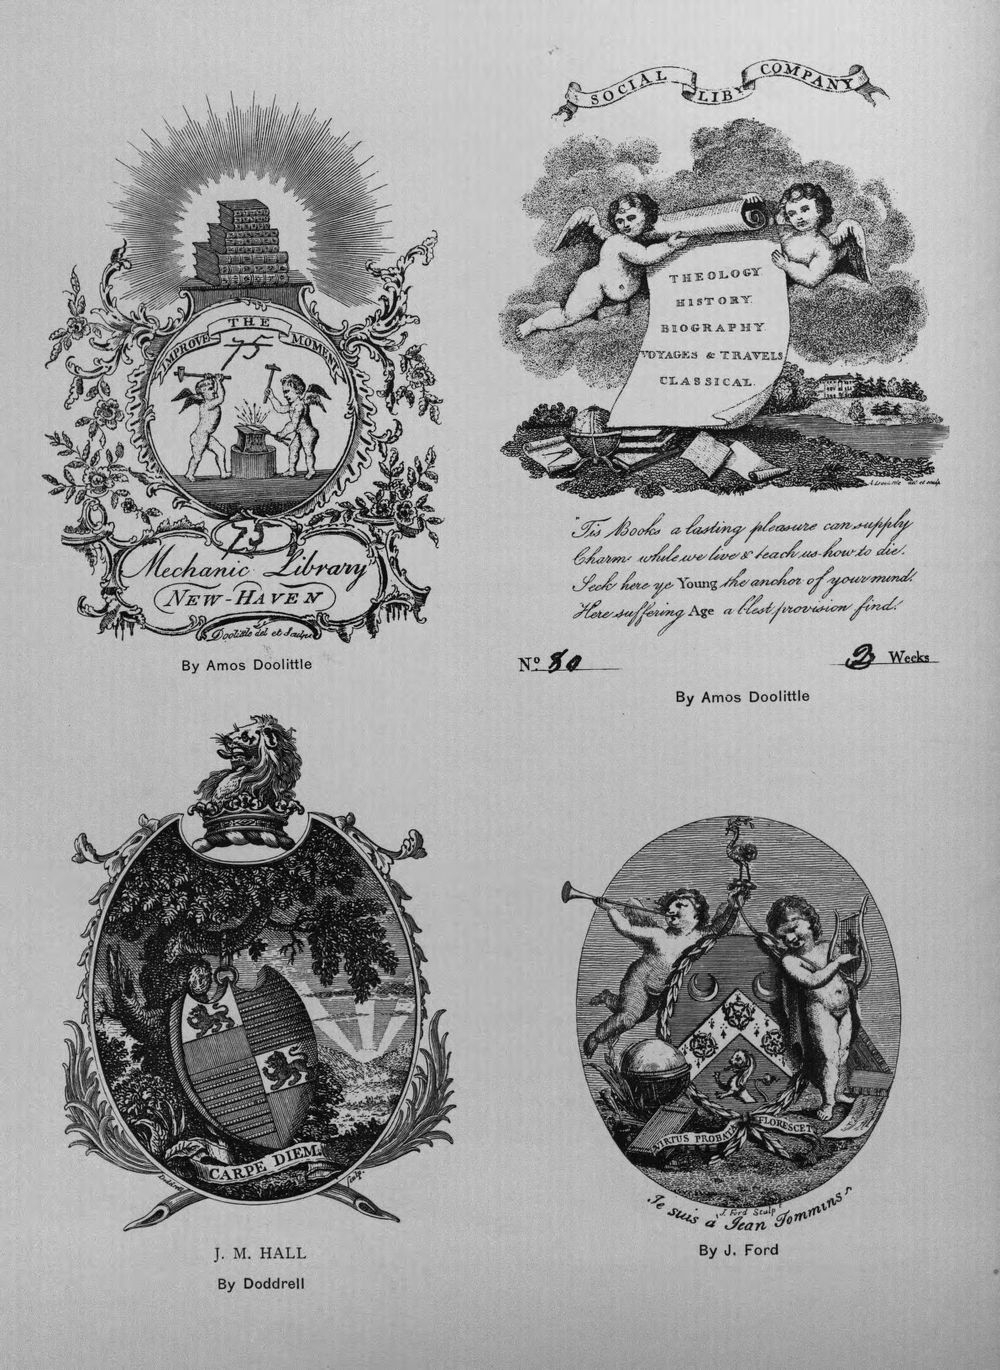 IMPROVE THE MOMENT
75
75
Mechanic Library
NEW-HAVEN
Doolittle del et Sculp
By Amos Doolittle
SOCIAL LIBY COMPANY
THEOLOGY
HISTORY.
BIOGRAPHY
VOYAGES & TRAVELS
CLASSICAL.
del et sculp.
"Tis Books a lasting pleasure can supply
Charm while we live & teach us how to die.
Seek here ye Young the anchor of your mind.
Here suffering Age a blest provision find.
No. 80
2 Weeks
By Amos Doolittle
CARPE DIEM.
Doddrell sculp.
J. M. HALL
By Doddrell
VIRTUS PROBATA FLORESCET
J. Ford Sculp
Je suis a Jean Tommins
By J. Ford